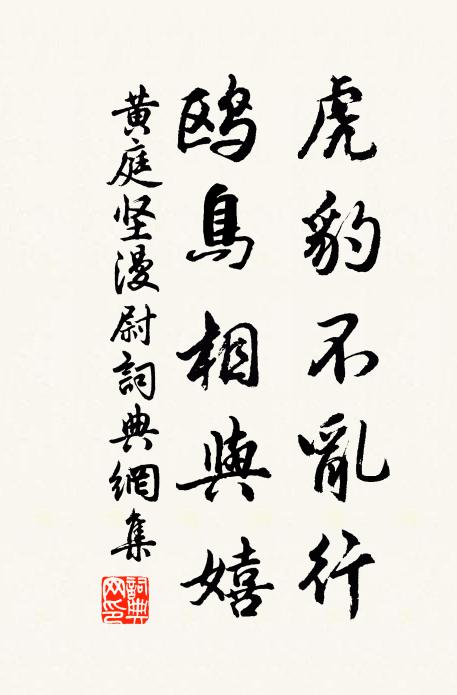 虎豹不亂行
鸥鳥相與嬉
黄庭坚漫尉詞典網集
詞典網印